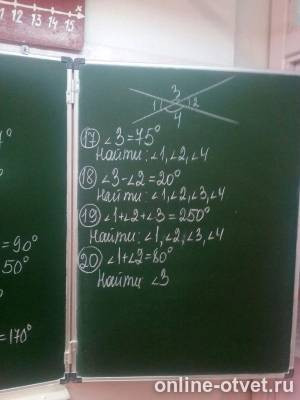 11 12 13 14 15
3
1 2
4
17 ∠3=75°
Найти: ∠1,∠2,∠4
18 ∠3-∠2=20°
Найти: ∠1,∠2,∠3,∠4
19 ∠1+∠2+∠3=250°
Найти: ∠1,∠2,∠3,∠4
20 ∠1+∠2=80°
Найти ∠3
=90°
50°
=170°
online-otvet.ru